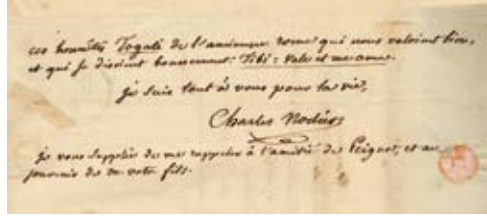 ces honnêtes Togati de l'ancienne Rome qui nous valoient bien,
et qui se disoient bonnement: Tibi: Vale et me ama.
Je suis tout à vous pour la vie,
Charles Nodier
je vous supplie de me rappeler à l'amitié de Peignot, et au
souvenir de m. votre fils.